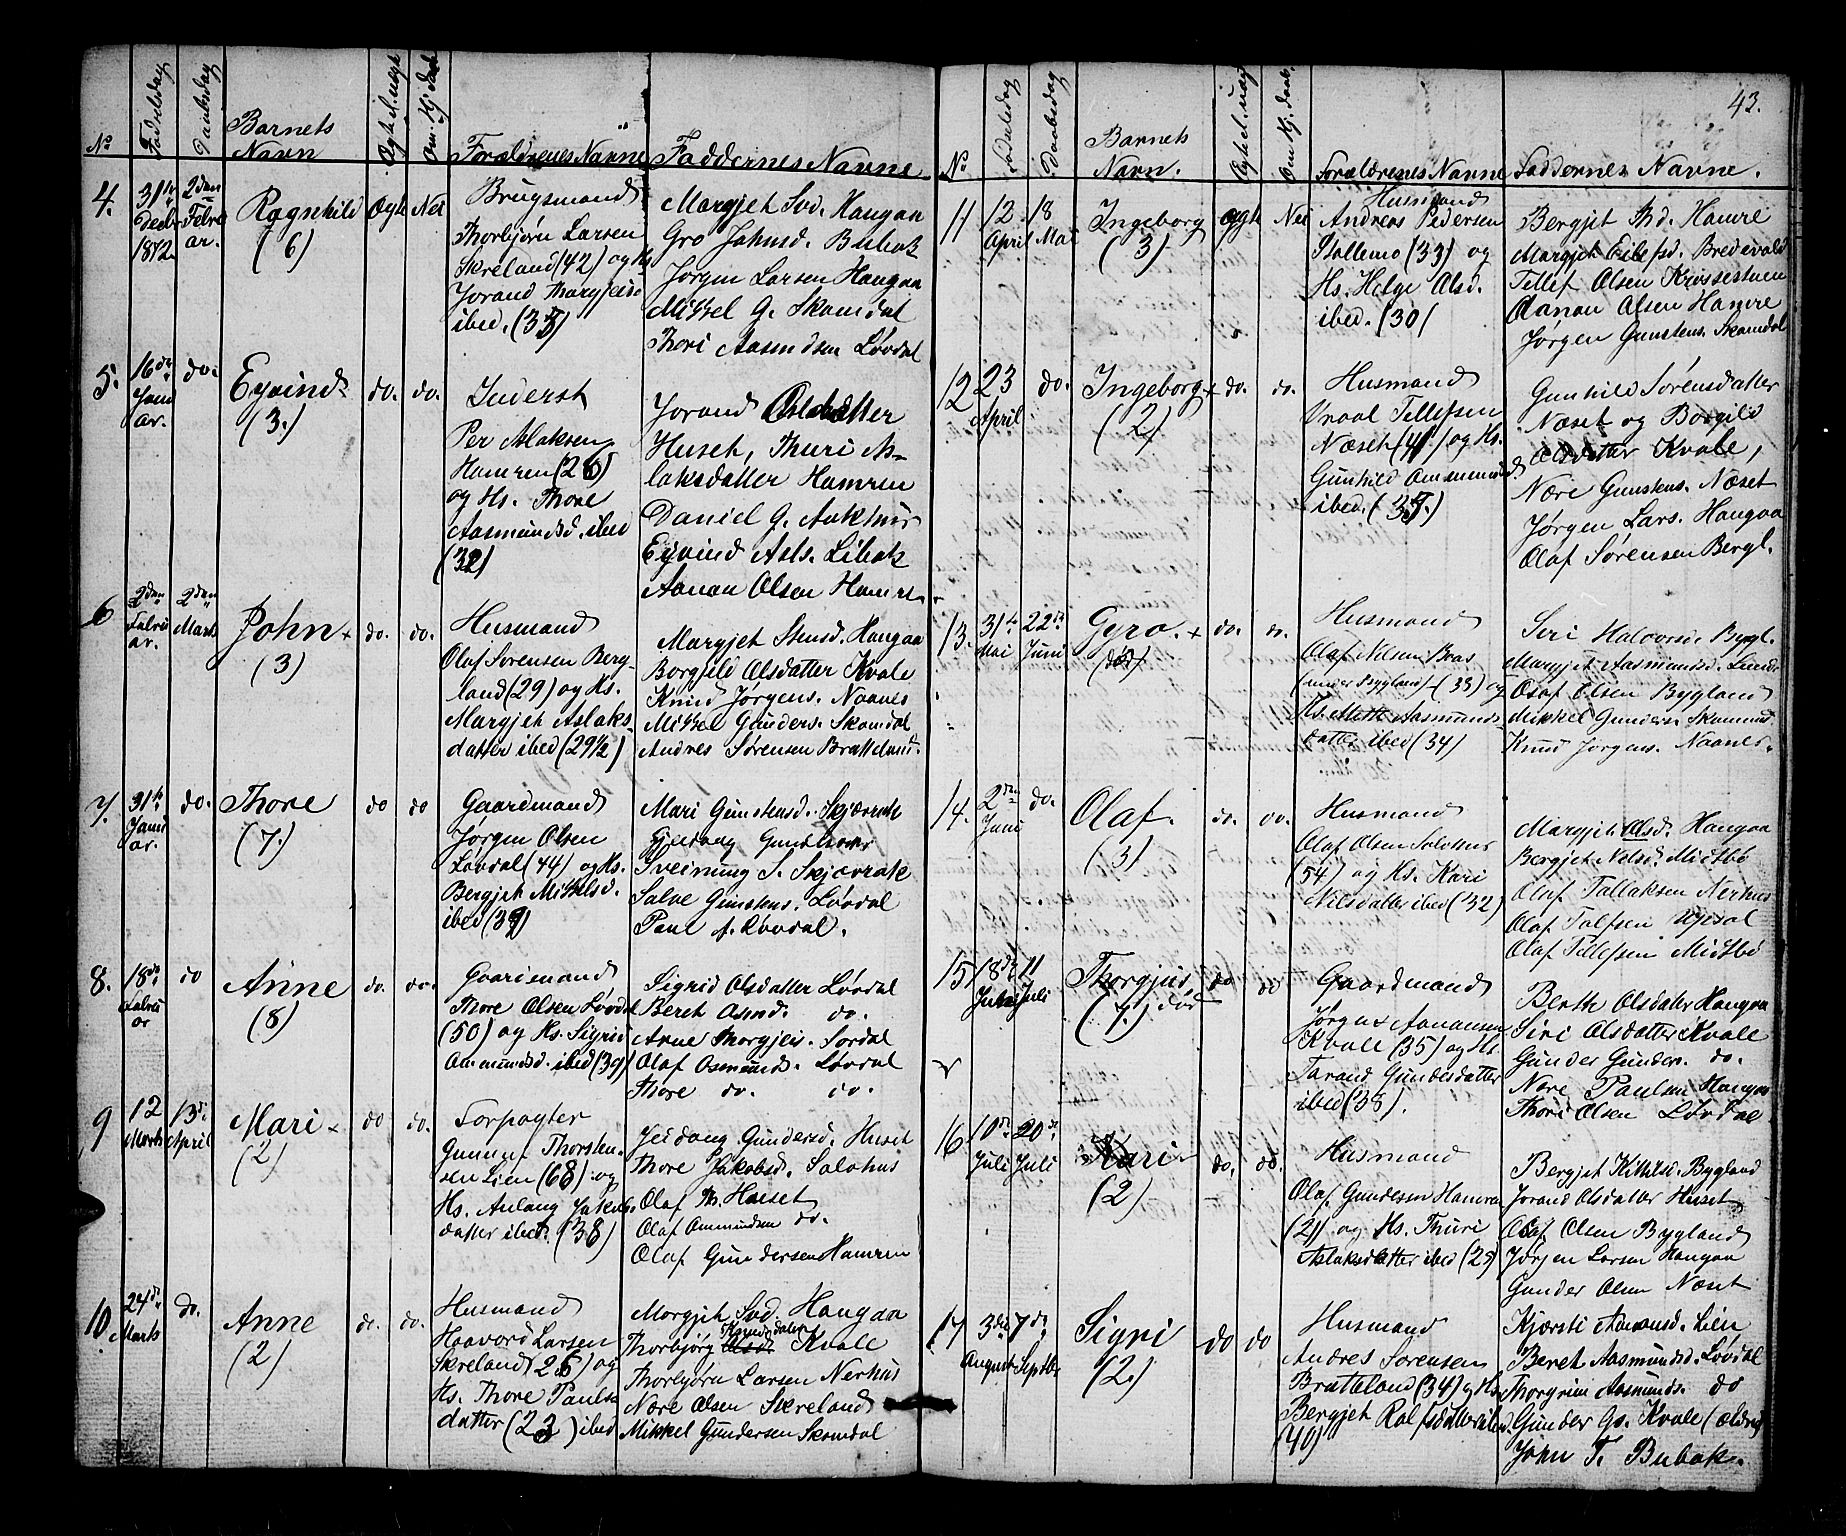 43.
No
Fødselsdag
Daabsdag
Barnets
Navn
Ægte l. uægt
Om. Hj. døbt
Forældrenes Navne
Faddernes Navne
4.
31te
Decbr
1872
2den
Februar.
Ragnhild
(6)
Ægte
Nei
Brugsmand
Thorbjørn Larsen
Skreland (42) og Hs.
Jorand Thorgjeisd.
ibed. (35)
Margjet Svd. Haugaa
Gro Johnsd. Bubak
Jørgen Larsen Haugaa
Mikkel G. Skomdal
Thori Aasmundsen Løvdal
5.
16de
Januar.
do.
Eyvind
(3.)
do.
do.
Inderst
Per Aslaksen
Hamren (26)
og Hs. Thore
Aasmundsd. ibed
(32)
Jorand Olsdatter
Huset, Thuri As-
laksdatter Hamren
Daniel G. Aakhus
Eyvind Asls. Libak
Aanon Olsen Hamre
6
2den
Februar.
2den
Marts
John +
(3)
do.
do.
Husmand
Olaf Sørensen Berg-
land (29) og Hs.
Margjet Aslaks-
datter ibed (29½)
Margjet Stensd. Haugaa
Borgild Olsdatter Kvale
Knud Jørgens. Naanes
Mikkel Gunders. Skomdal
Andres Sørensen Bratteland.
7.
31te
Januar.
do.
Thore
(7.)
do
do
Gaardmand
Jørgen Olsen
Løvdal (44) og Hs.
Bergjet Mikkelsd.
ibed (39)
Mari Gunstensd. Skjævrak
Sveinung S. Skjævrak
Salve Gunstens. Løvdal
Paul J. Løvdal.
8.
18de
Februar
do
Anne
(8)
do.
do.
Gaardmand
Thore Olsen Løvdal
(50) og Hs. Sigrid
Ommundsd. ibed (39)
Sigrid Olsdatter Løvdal
Beret Osmd. do.
Anne Thorgjeis. Sordal
Olaf Osmunds. Løvdal
Thore do. do.
9
12
Marts
13de
April
Mari
(2)
do
do.
Forpagter
Gunnuf Thorsten-
sen Lien (68) og
Hs. Anlaug Jakobs-
datter ibed. (38)
Jeidang Gundersd. Huset
Thore Jakobsd. Solohus
Olaf Th. Huset
Olaf Ommundsen do.
Olaf Gundersen Hamren
10.
24de
Marts
do.
Anne
(2)
do.
do.
Husmand
Haavord Larsen
Skreland (26) og
Hs. Thore Pauls-
datter (23) ibed
Morgjet Svd. Haugaa
Thorbjørg Knudsdatter Kvale
Thorbjørn Larsen Nerhus
Nore Olsen Skreland
Mikkel Gundersen Skomdal
No
Fødselsdag
Daabsdag
Barnets
Navn.
Ægte l. uægt
Om Hj. daab.
Forældrenes Navne
Faddernes Navne.
11
12
April
18
Mai
Ingeborg
(3)
Ægte
Nei
Husmand
Andreas Pedersen
Stallemo (33) og
Hs. Helge Olsd.
ibed. (30)
Bergjet Thd. Hamre
Margjet Eilefsd. Bredevald
Tellef Olsen Krossestuen
Aanon Olsen Hamre
Jørgen Gunstens. Skomdal
12
23
April
do.
Ingeborg +
(2)
do.
do.
Husmand
Vraal Tellefsen
Næset (41) og Hs.
Gunhild Ommunds.
ibed. (37.)
Gunhild Sørensdatter
Næset og Borgild
Olsdatter Kvale,
Nore Gunstens. Næset
Jørgen Lars. Haugaa
Olaf Sørensen Bergl.
13.
31te
Mai
22de
Juni
Gyro. +
(død)
do.
do.
Husmand
Olaf Nilsen Braas
(under Bygland) (33) og
Hs. Mette Aasmunds-
datter ibed (34)
Seri Halvorsd. Bygl.
Margjet Aasmundsd. Lunde
Olaf Olsen Bygland
Mikkel Gunders. Skomdal
Knud Jørgens. Naanes.
14.
2den
Juni
do.
Olaf.
(3)
do.
do.
Husmand
Olaf Olsen Solohus
(54) og Hs. Kari
Nilsdatter ibed (32)
Margjet Olsd. Haugaa
Bergjet Nilsd. Midtbø
Olaf Tallaksen Nerhus
Olaf Tellefsen Midtbø
15
18de
Juni
11
Juli
Thorgjus
(7.) død
do
do
Gaardmand
Jørgen Aanonsen
Kvale (35) og Hs.
Tarand Gundersdatter
ibed (38).
Berthe Olsdatter Haugaa
Siri Olsdatter Kvale
Gunder Gunders. do.
Nore Paulsen Haugaa
Thore Olsen Løvdal
16
10de
Juli
20de
Juli
Kari
(2)
do.
do.
Husmand
Olaf Gundersen Hamren
(21) og Hs. Thuri
Aslaksdatter ibed (25)
Bergjet Kittilsd. Bygland
Jorand Olsdatter Huset
Olaf Olsen Bygland
Jørgen Larsen Haugaa
Gunder Olsen Næset
17
3de
August
7de
Septbr.
Signi
(2.)
do
do
Husmand
Andres Sørensen
Bratteland (34) og Hs.
Bergjet Rolfsdatter ibed.
(40)
Kjærsti Aanonsd. Lien
Beret Aasmundsd. Løvdal
Thorgrim Aasmunds. do
Gunder Gs. Kvale (ældre)
John T. Bubak.